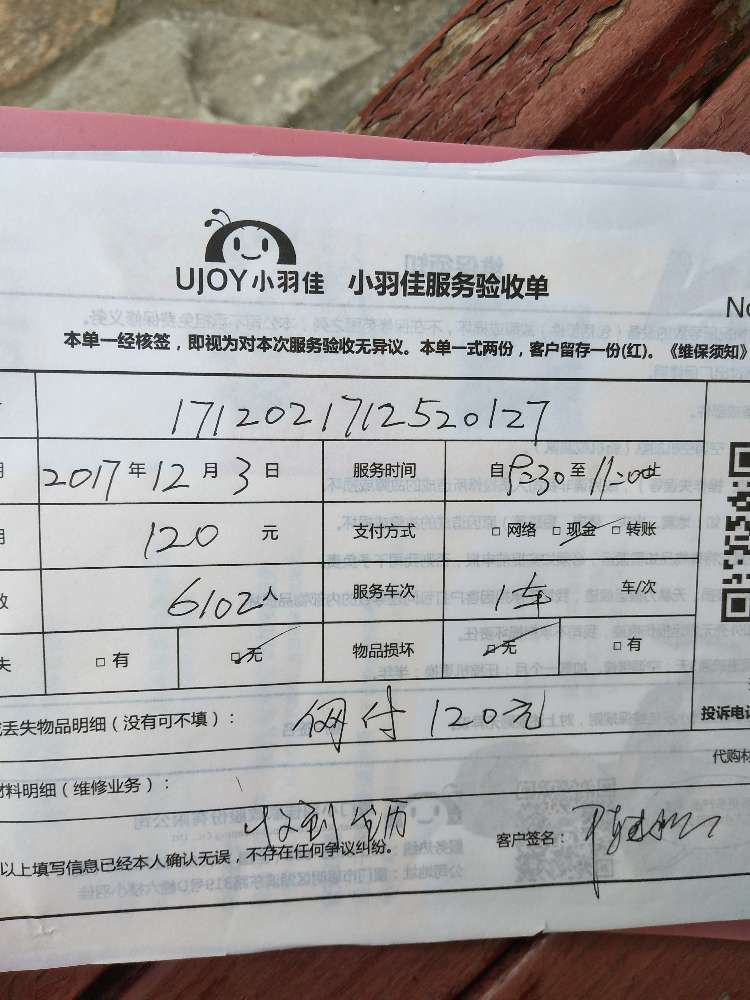 UJOY小羽佳 小羽佳服务验收单
No
本单一经核签，即视为对本次服务验收无异议。本单一式两份，客户留存一份(红)。《维保须知》
1712021712520127
2017年12月3日 服务时间 自8:30至11:00止
120 元 支付方式 □网络 □现金 □转账
6102人 服务车次 1车 车/次
失 □有 □无 物品损坏 □无 □有
丢失物品明细（没有可不填）： 网付120元
投诉电话
材料明细（维修业务）：
代购材
收到
以上填写信息已经本人确认无误，不存在任何争议纠纷。 客户签名：